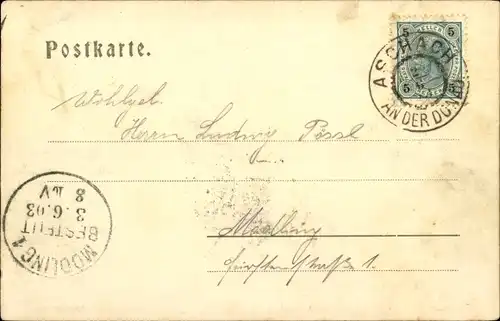 Postkarte.
5 HELLER 5
ASCHACH
AN DER DONAU
5 5
Wohlgeb.
Herrn Ludwig Pössl
Mödling
1.
MÖDLING 1
BESTELLT
3.6.03
8 V